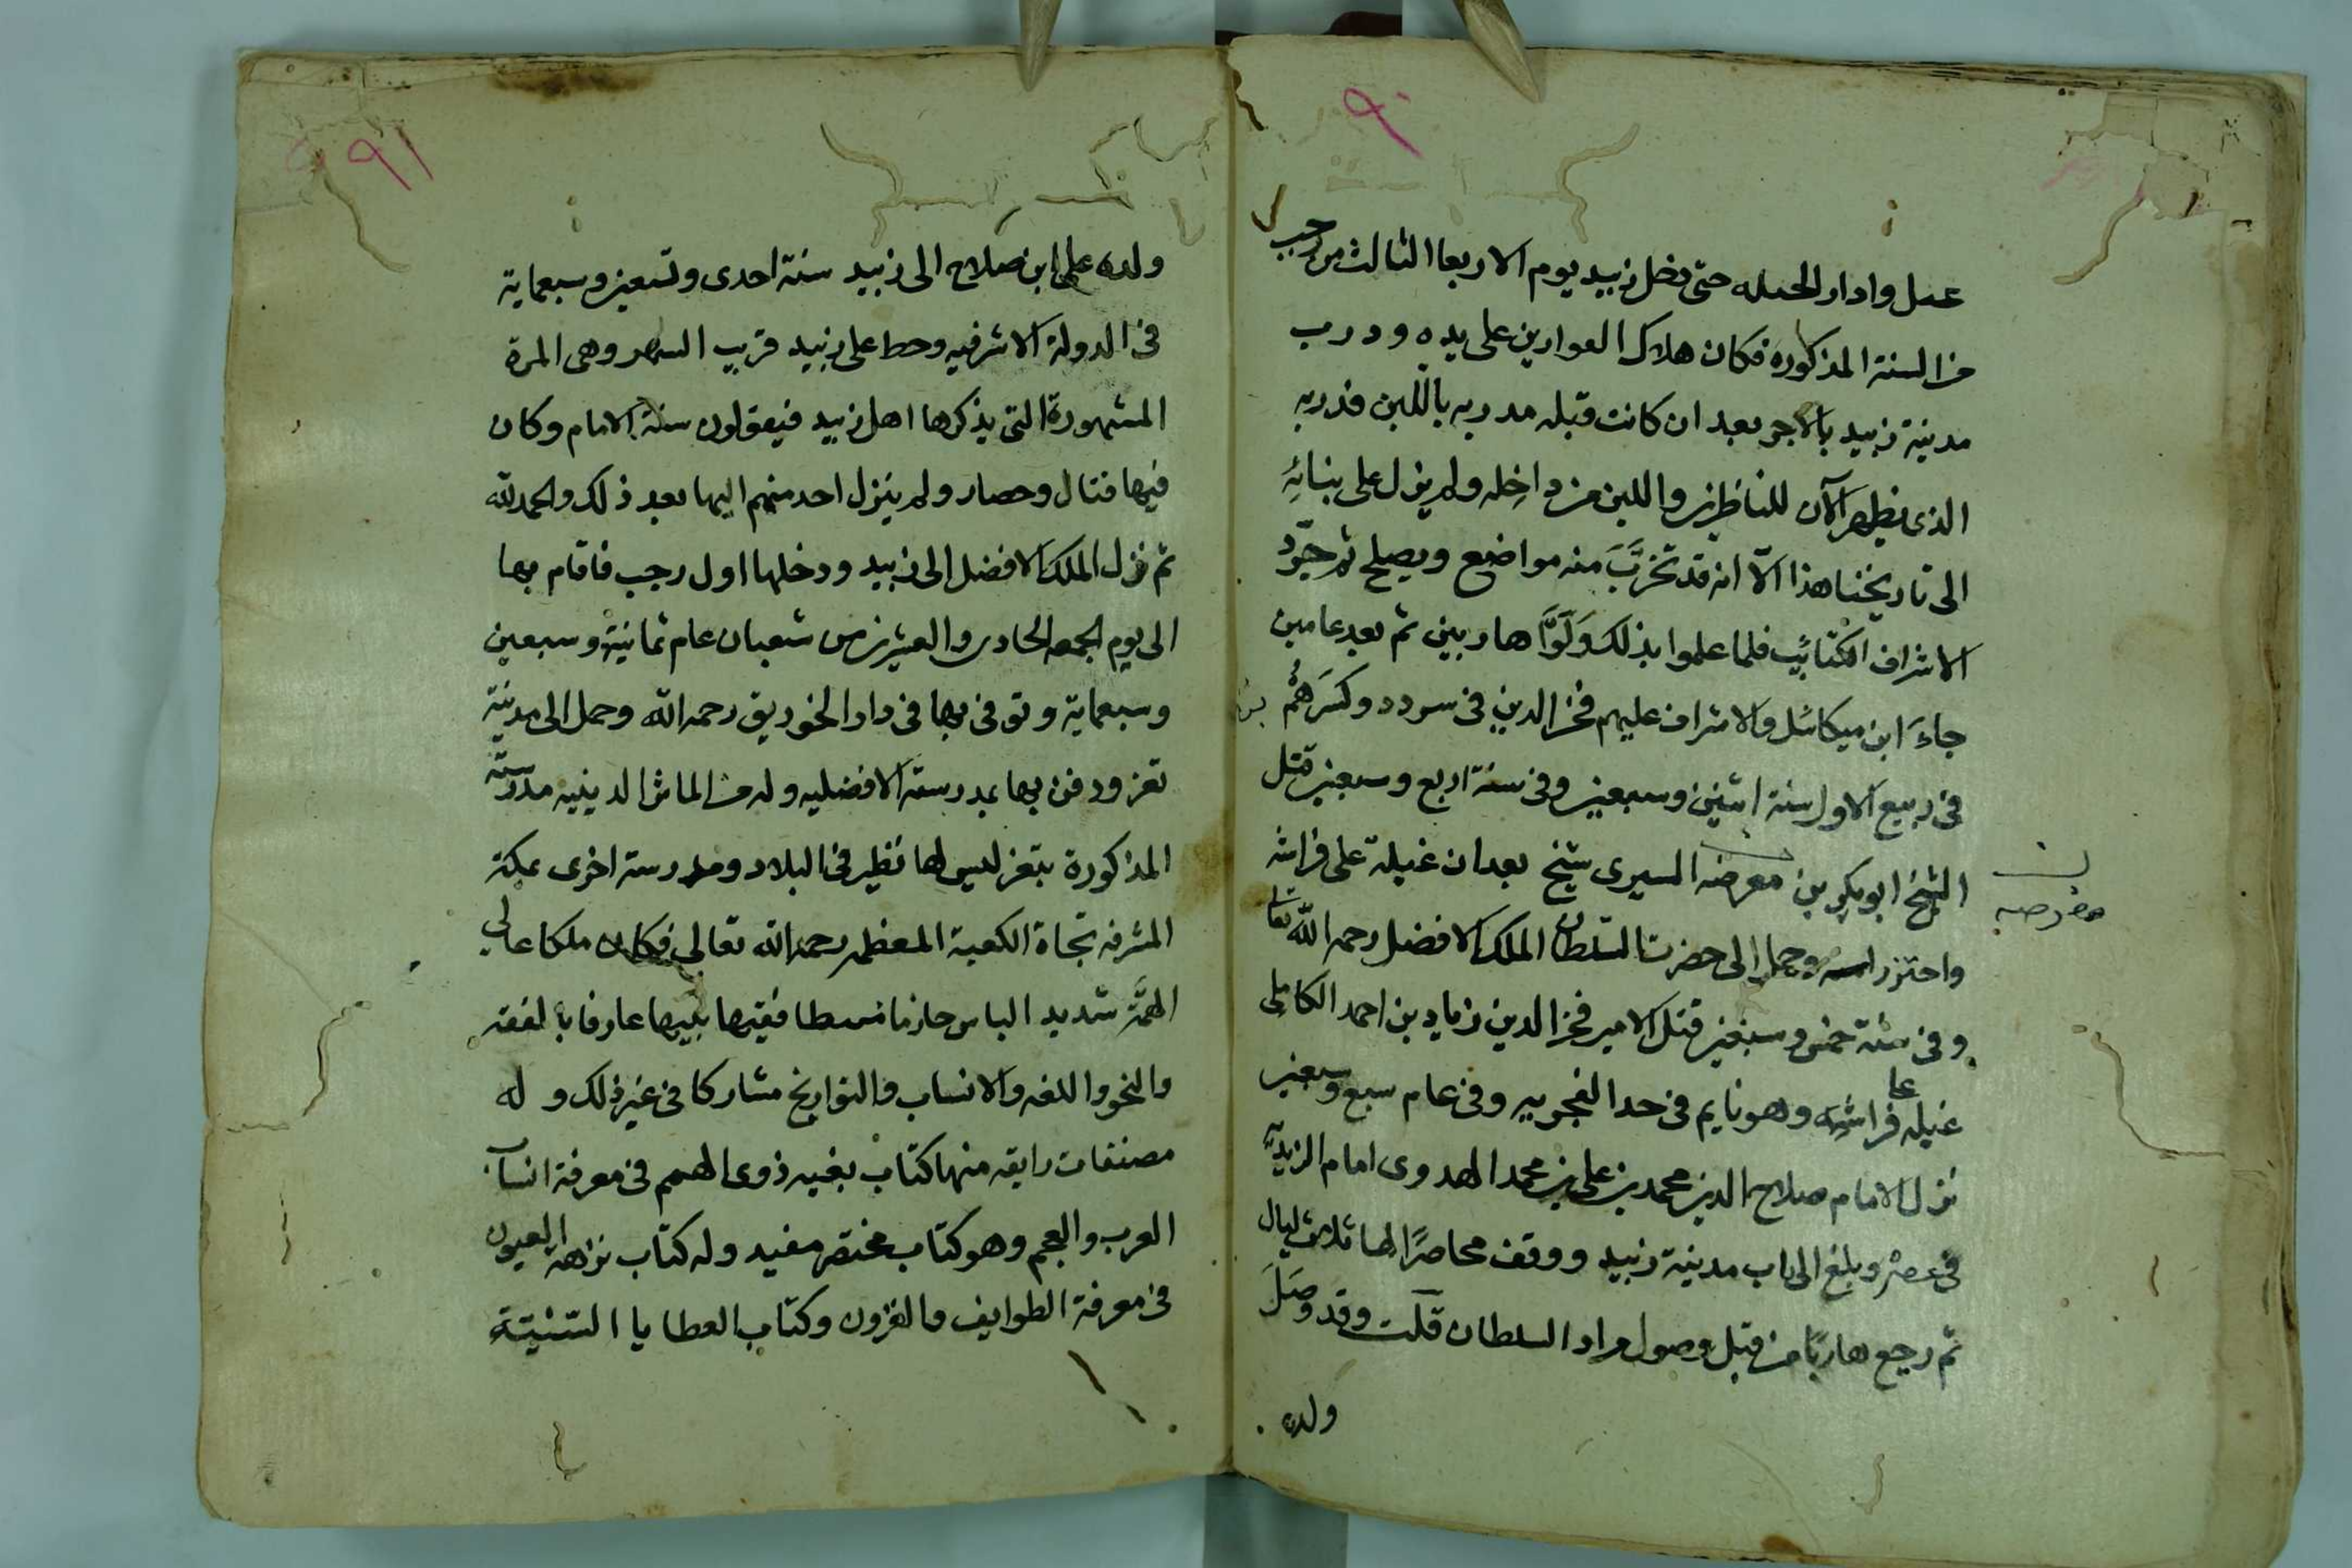 ٩٠
عمل وادار الحيله حتى دخل زبيد يوم الاربعا الثالث من رجب
من السنة المذكورة فكان هلاك العوارين على يده ودرب
مدينة زبيد بالاجر بعد ان كانت قبله مدربه باللبن فدربه
الذى يظهر الآن للناظرين واللبن من داخله ولم يزل على بنائه
الى تاريخنا هذا الّا انه قد تخرَّبَ منه مواضع ويصلح ثم جرّد
الاشراف الكتائب فلما علموا بذلك وَلَّوْا هاربين ثم بعد عامين
جاءَ ابن ميكائل والاشراف عليهم فخر الدين فى سردد وكسَرَهُمْ
فى ربيع الاول سنة اثنين وسبعين وفى سنة اربع وسبعين قتل
الشيخ ابو بكر بن معرضه السيرى شيخ بعدان غيلة على فراشه
معرضه
واحتز راسه وحمل الى حضرت السلطان الملك الافضل رحمه الله تعا
وفى سنة خمس وسبعين قتل الامير فخر الدين زياد بن احمد الكاملى
غيله على فراشه وهو نايم فى حد الفجريه وفى عام سبع وسبعين
نزل الامام صلاح الدين محمد بن على بن محمد الهدوى امام الزيديّه
فى عصره وبلغ الى باب مدينة زبيد ووقف محاصرًا لها ثلاث ليال
ثم رجع هاربًا من قبل وصول مراد السلطان قلت وقد وصَلَ
ولده
٩١
ولده على ابن صلاح الى زبيد سنة احدى وتسعين وسبعماية
فى الدولة الاشرفيه وحط على زبيد قريب الشهر وهى المرة
المشهورة التى يذكرها اهل زبيد فيقولون سنة الامام وكان
فيها قتال وحصار ولم ينزل احد منهم اليها بعد ذلك والحمد لله
ثم نزل الملك الافضل الى زبيد ودخلها اول رجب فاقام بها
الى يوم الجمعه الحادى والعشرين من شعبان عام ثمانية وسبعين
وسبعماية وتوفى بها فى دار الخورنق رحمه الله وحمل الى مدينة
تعز ودفن بها بمدرسته الافضليه وله من الماثر الدينيه مدرسته
المذكورة بتعز ليس لها نظير فى البلاد ومدرسة اخرى بمكة
المشرفه تجاة الكعبة المعظمه رحمه الله تعالى فكان ملكا عالي
الهمَّة شديد الباس حازما فقيها نبيها عارفا بالفقه
والنحو واللغه والانساب والتواريخ مشاركا فى غير ذلك وله
مصنفات رايقه منها كتاب بغيه ذوى الهمم فى معرفة انساب
العرب والعجم وهو كتاب مختصر مفيد وله كتاب نزهة العيون
فى معرفة الطوايف والقرون وكتاب العطايا السّنيّة